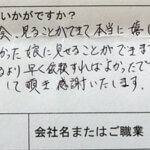 いかがですか？
会、見ることができて本当に嬉し
かった 娘に見せることができます
るより早く依頼すればよかったで
して頂き感謝いたします。
会社名またはご職業